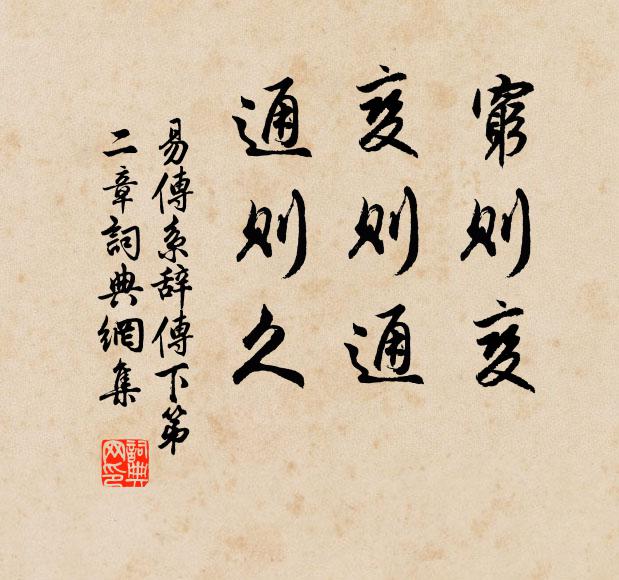 窮則變
變則通
通則久
易傳系辭傳下第
二章詞典網集
詞典
网印